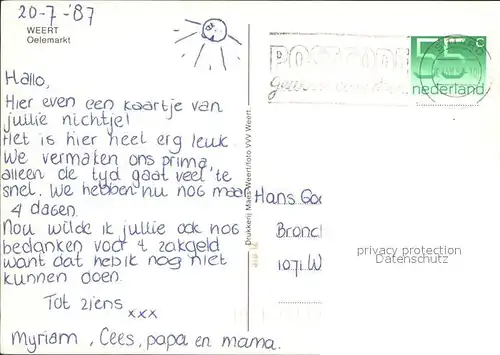 20-7-'87
WEERT
Oelemarkt
Hallo,
Hier even een kaartje van
jullie nichtje!
Het is hier heel erg leuk.
We vermaken ons prima
alleen de tyd gaat veel te
snel. We hebben nu nog maar
4 dagen.
Nou wilde ik jullie ook nog
bedanken voor 't zakgeld
want dat heb ik nog niet
kunnen doen.
Tot ziens
xxx
Myriam, Cees, papa en mama.
Drukkerij Maes Weert/foto VVV Weert.
POSTCODE
55 c
nederland
Hans
1071 W
privacy protection
Datenschutz